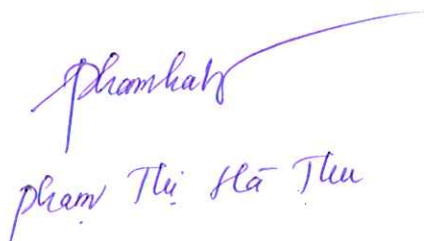 Phamhat
Phạm Thị Hà Thu